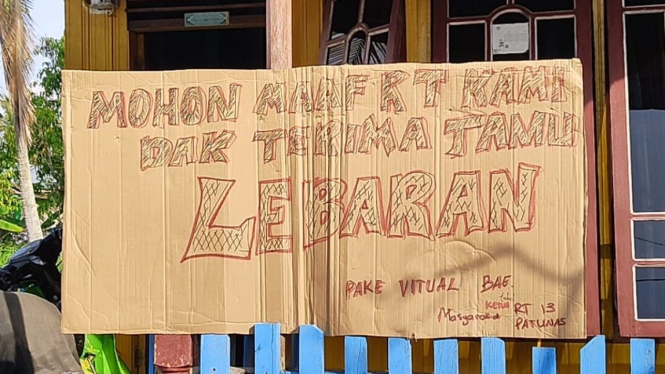 MOHON MAAF RT KAMI
DAK TERIMA TAMU
LEBARAN
PAKE VITUAL BAE.
KETUA RT 13
Masyarakat PATUNAS